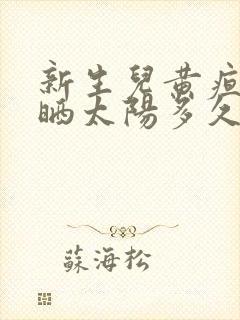 新生兒黄疸
晒太陽多久
蘇海松